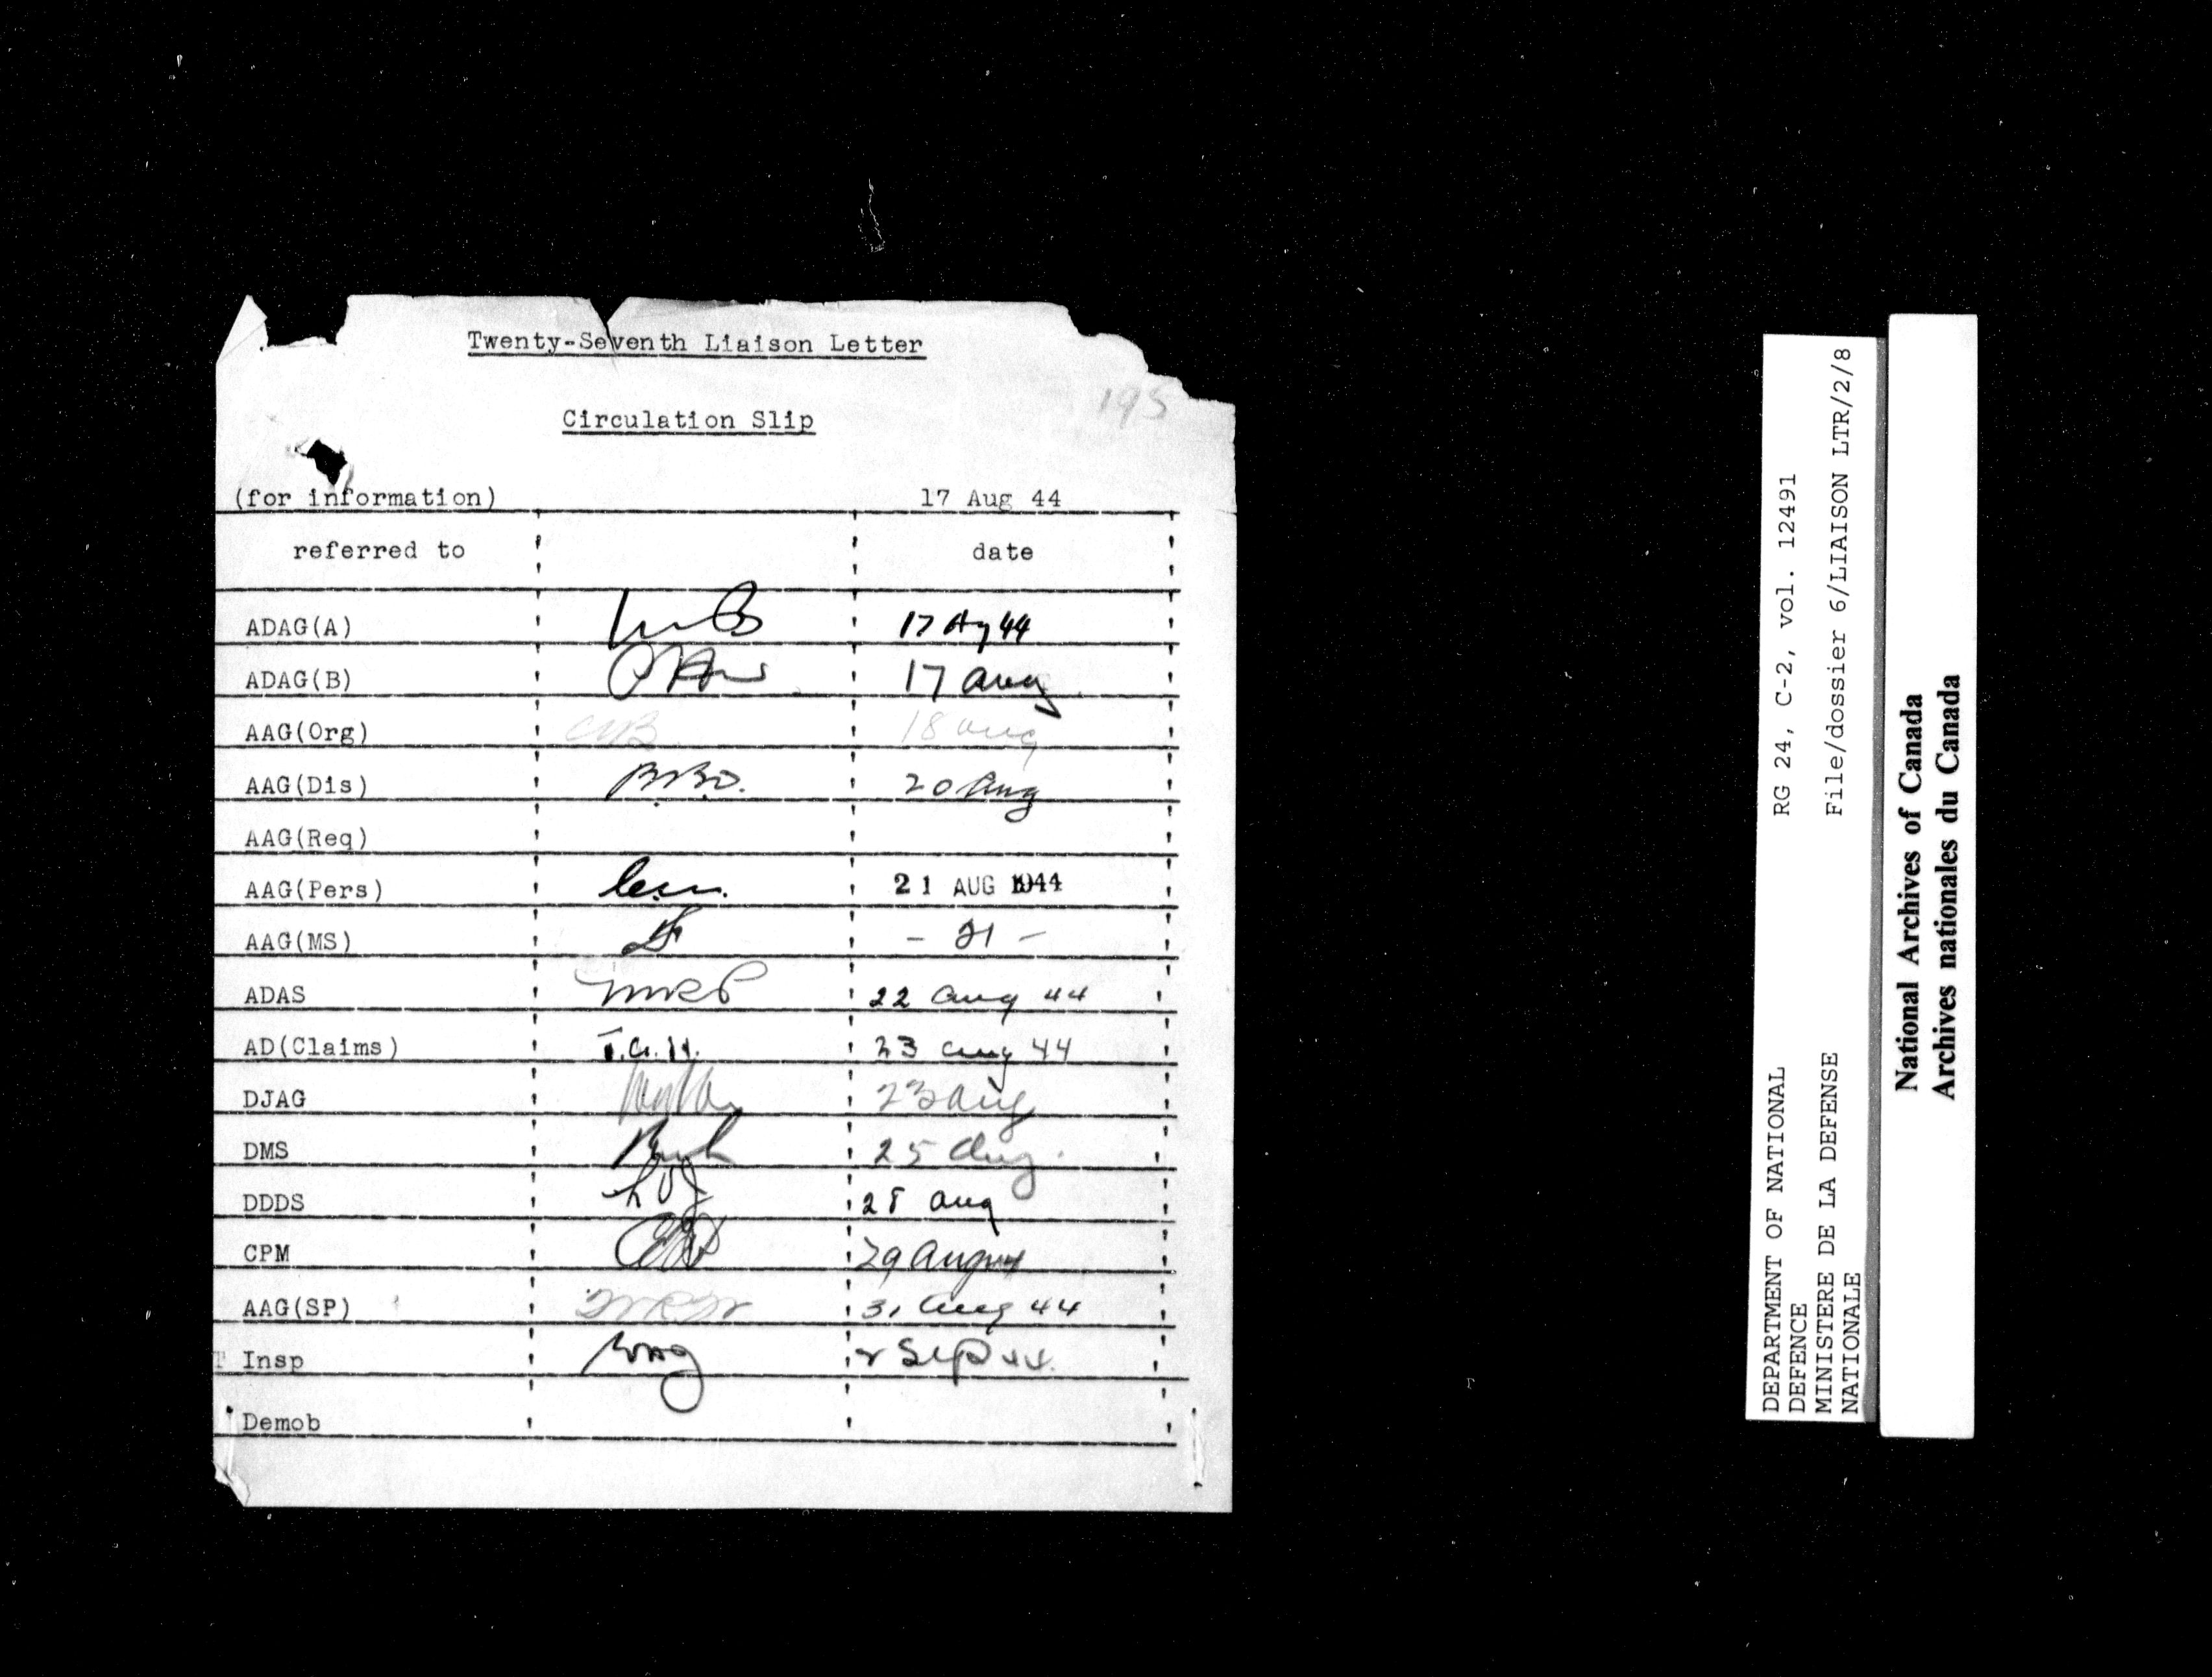 Twenty-Seventh Liaison Letter
195
Circulation Slip
(for information) 17 Aug 44
referred to date
ADAG(A) 17 Ag 44
ADAG(B) 17 Aug
AAG(Org) 18 Aug
AAG(Dis) 20 Aug
AAG(Req)
AAG(Pers) 21 AUG 1944
AAG(MS) - 21 -
ADAS 22 Aug 44
AD(Claims) 23 Aug 44
DJAG 23 Aug
DMS 25 Aug.
DDDS 28 Aug
CPM 29 Aug 44
AAG(SP) 31 Aug 44
Insp 2 Sep 44.
Demob
DEPARTMENT OF NATIONAL RG 24, C-2, vol. 12491
DEFENCE
MINISTERE DE LA DEFENSE File/dossier 6/LIAISON LTR/2/8
NATIONALE
National Archives of Canada
Archives nationales du Canada